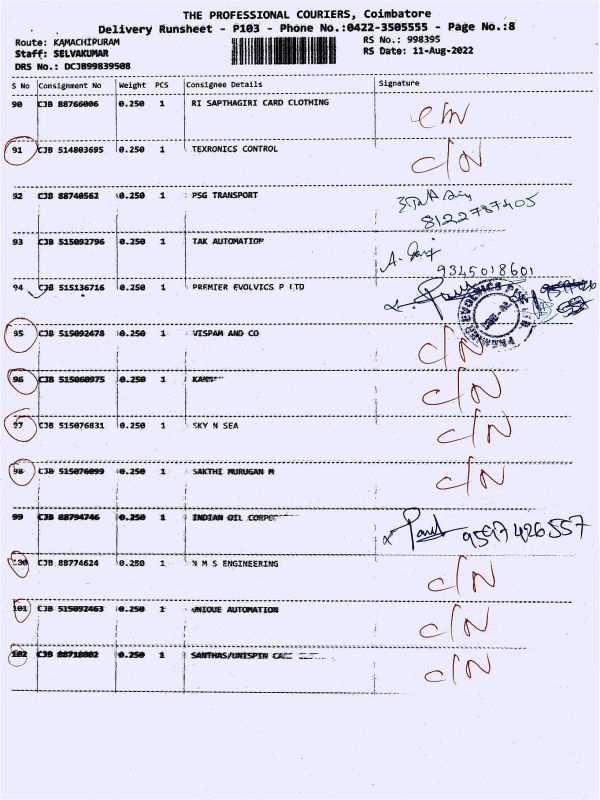 THE PROFESSIONAL COURIERS, Coimbatore
Delivery Runsheet - P103 - Phone No.:0422-3505555 - Page No.:8
Route: KAMACHIPURAM RS No.: 998395
Staff: SELVAKUMAR RS Date: 11-Aug-2022
DRS No.: DCJB99839508
S No Consignment No Weight PCS Consignee Details Signature
90 CJB 88766006 0.250 1 RI SAPTHAGIRI CARD CLOTHING
91 CJB 514803695 0.250 1 TEXRONICS CONTROL C/N
92 CJB 88740562 0.250 1 PSG TRANSPORT
8122787405
93 CJB 515092796 0.250 1 TAK AUTOMATION
9345018601
94 CJB 515136716 0.250 1 PREMIER EVOLVICS P LTD
95 CJB 515092478 0.250 1 VISPAM AND CO C/N
96 CJB 515060975 0.250 1 C/N
97 CJB 515076831 0.250 1 SKY N SEA C/N
98 CJB 515076099 0.250 1 SAKTHI MURUGAN M C/N
99 CJB 88794746 0.250 1 INDIAN OIL 9597426557
100 CJB 88774624 0.250 1 N M S ENGINEERING C/N
101 CJB 515092463 0.250 1 UNIQUE AUTOMATION C/N
102 CJB 88718002 0.250 1 SANTHAS/UNISPIN C/N